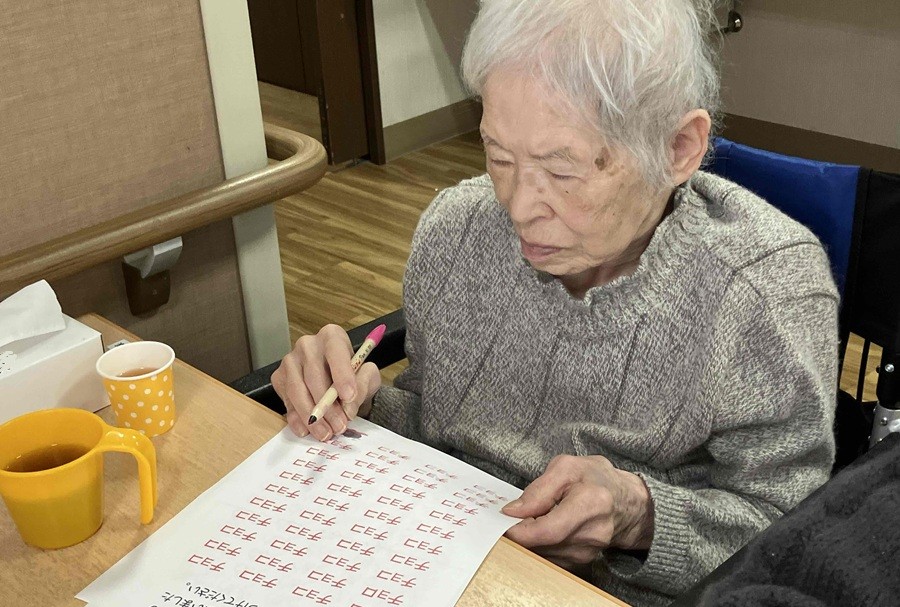 いました
つけてください。
チョコ チョコ チョコ チョコ
チョコ チョコ チョコ チョコ
チョコ チョコ チョコ チョコ
チョコ チョコ チョコ チョコ
チョコ チョコ チョコ チョコ
チョコ チョコ チョコ チョコ
チョコ チョコ チョコ チョコ
チョコ チョコ チョコ チョコ
チョコ チョコ チョコ チョコ
チョコ チョコ チョコ